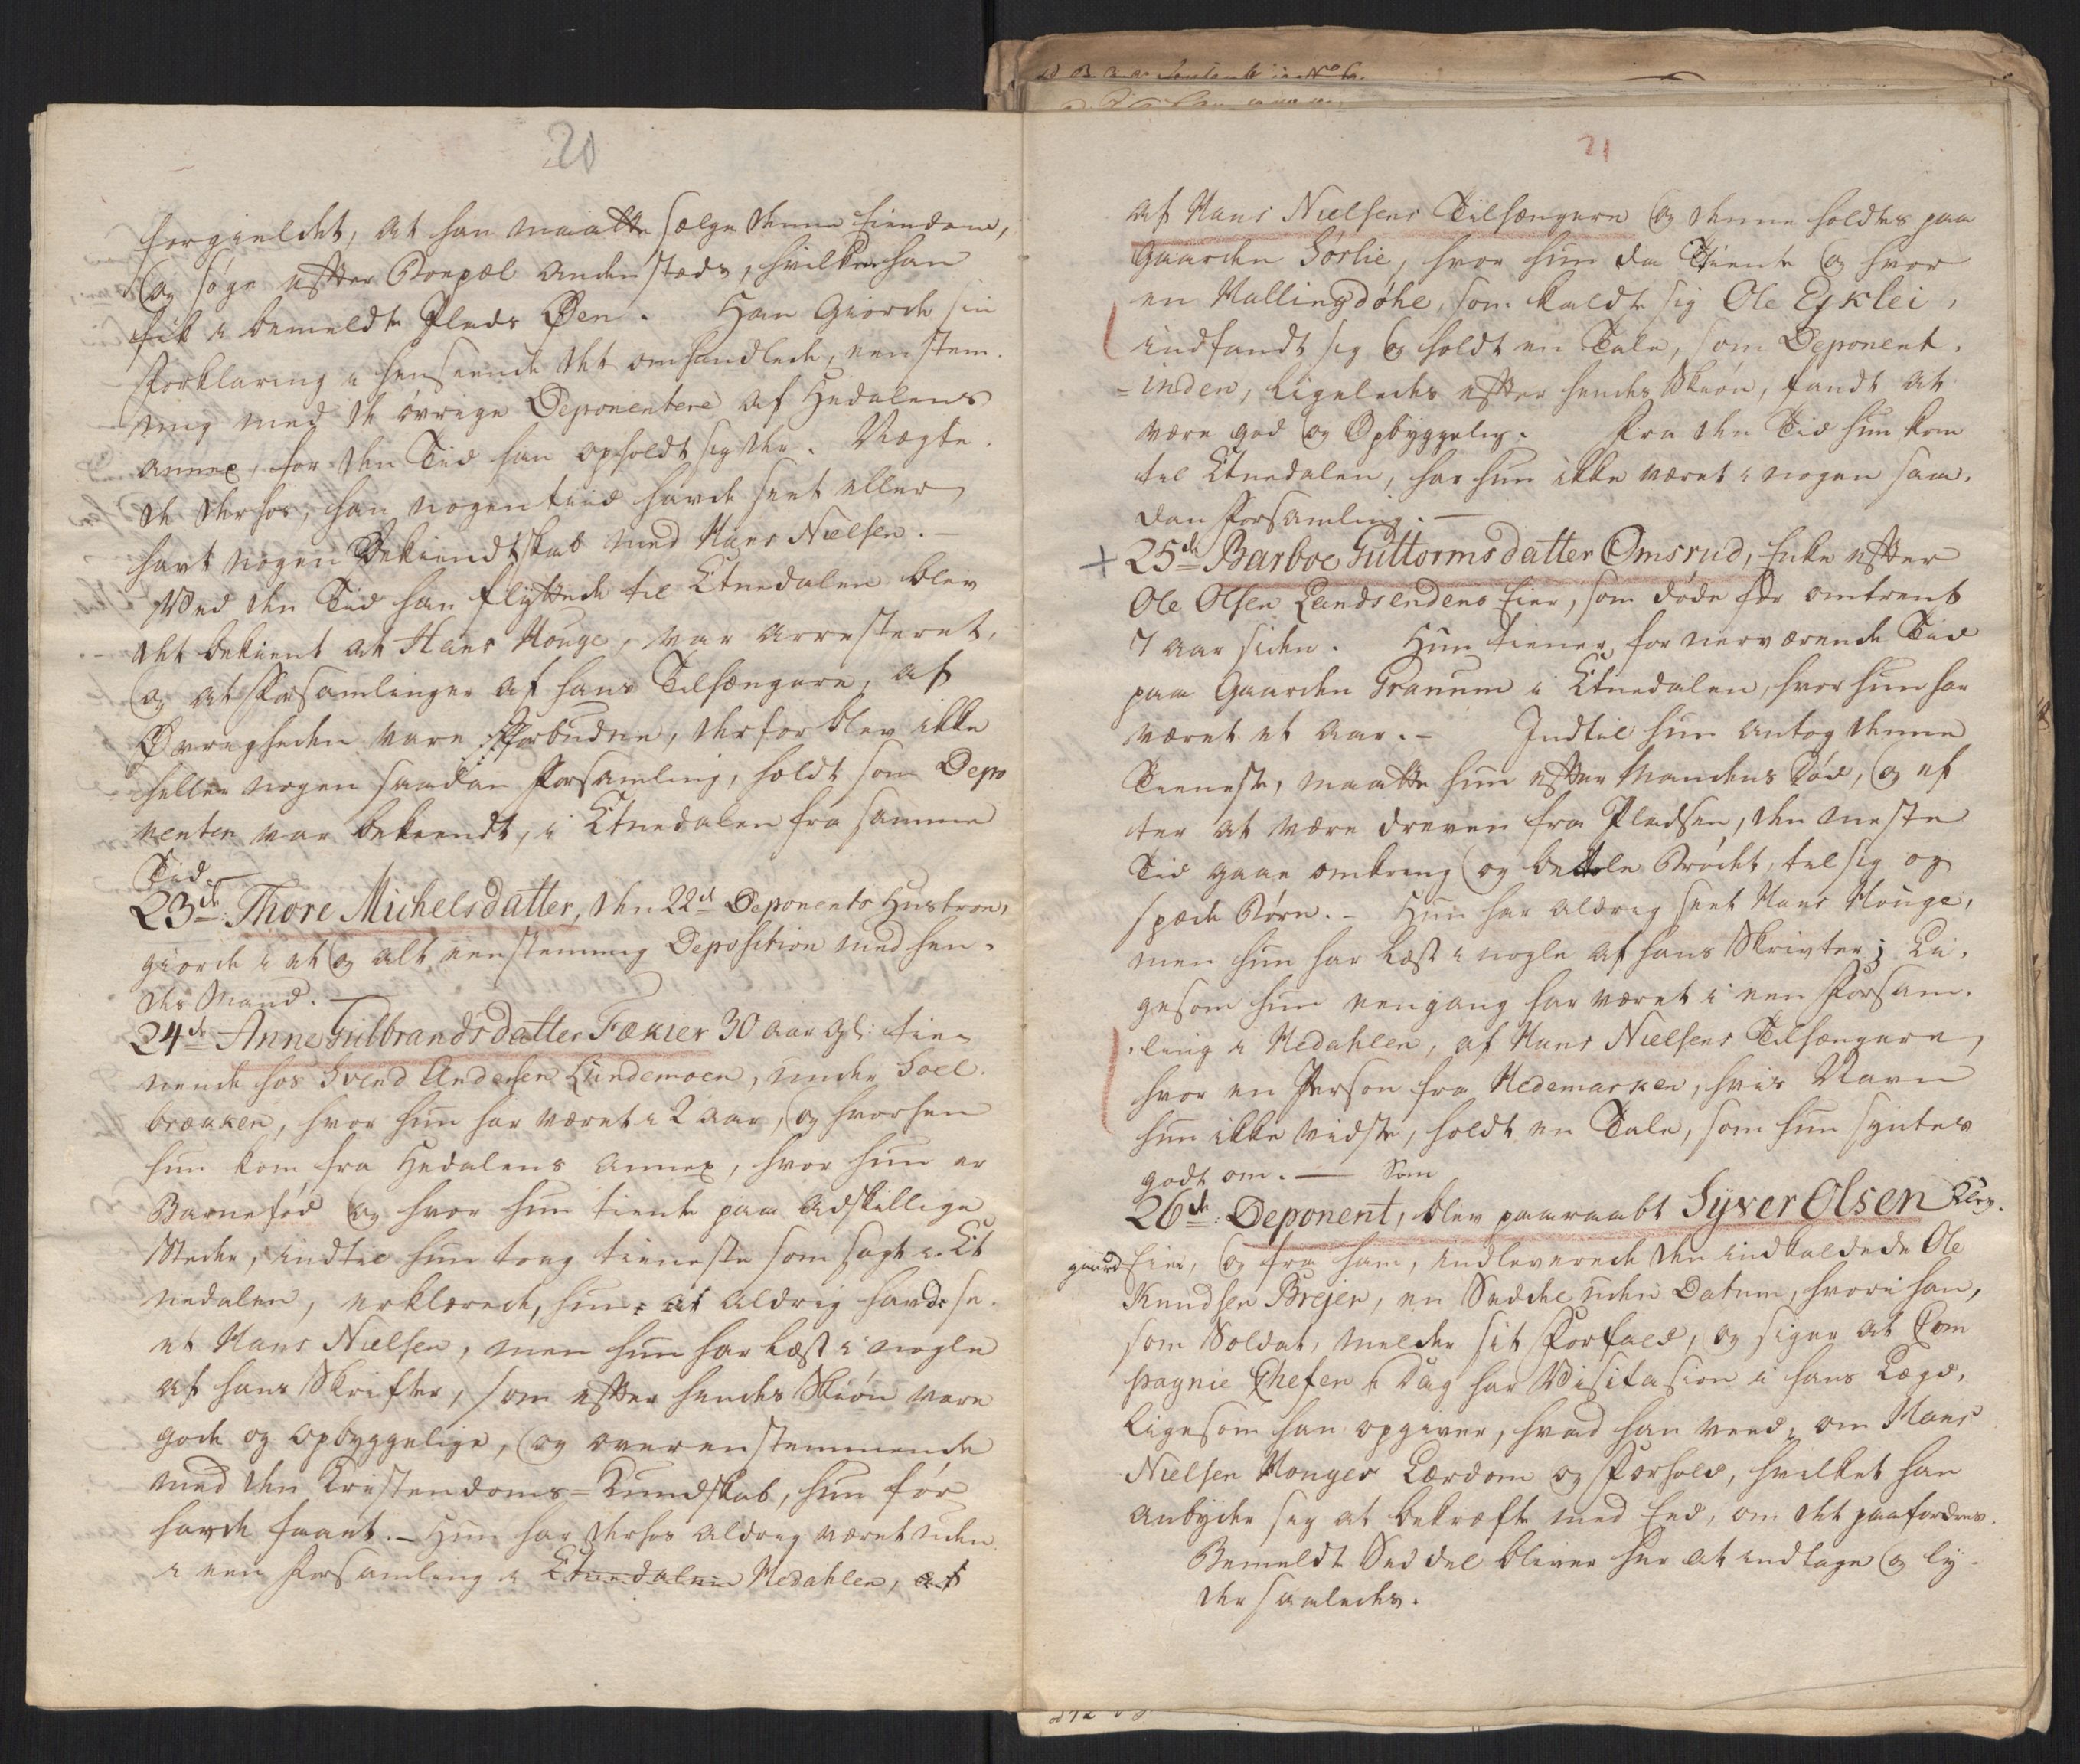 20
forgieldet, at han maatte sælge denne Eiendom,
og søge efter Boepæl andenstæds, hvilken han
fik i bemeldte Plads Øen. Han Giorde sin
Forklaring i henseende det omhandlede, eenstem-
mig med de øvrige Deponentere af Hedalens
annex, for den Tiid han opholdt sig der. Nægte-
de derhos, han nogentiid havde seet eller
havt nogen Bekiendtskab med Hans Nielsen. -
Ved den Tiid han flyttede til Etnedalen blev
det bekient at Hans Houge, var arresteret,
og at Forsamlinger af hans Tilhængere, af
Øvrigheden vare Forbudne, derfor blev ikke
heller nogen saadan Forsamling, holdt som Depo
nenten var bekiendt, i Etnedalen fra samme
Tid. -
23de Thore Michelsdatter, den 22de Deponents Hustroe,
giorde i et og alt eenstemmig Deposition med hen-
des Mand. -
24de Anne Gulbrandsdatter Fækier 30 aar gl: tie-
nende hos Svend Andersen Lundemoen, under Soel-
brækken, hvor hun har været i 2 aar, og hvorhen
hun kom fra Hedalens annex, hvor hun er
Barnefød og hvor hun tiente paa adskillige
Steder, indtil hun tog tieneste som sagt i Et
nedalen, erklærede, hun at aldrig havde se-
et Hans Nielsen, men hun har læst i nogle
af hans Skrifter, som efter hendes Skiøn vare
gode og opbyggelige, og overensstemmende
med den Kristendoms=Kundskab, hun før
havde faaet. - Hun har derhos aldrig været uden
i een Forsamling i Etnedalen Hedahlen, af
21
af Hans Nielsens Tilhængere og denne holdtes paa
Gaarden Sørlie, hvor hun da Tiente og hvor
en Hallingdøhl, som kaldte sig Ole Ejklei,
indfandt sig og holdt en Tale, som Deponent-
-inden, ligeledes efter hendes Skiøn, fandt at
være god og Opbyggelig. Fra den Tid hun kom
til Etnedalen, har hun ikke været i nogen saa-
dan Forsamling. -
+ 25de Barboe Guttormsdatter Omsrud, Enke efter
Ole Olsen Landsendens Eier, som døde for omtrent
7 aar siden. Hun tiener for nerværende Tid
paa Gaarden Granum i Etnedalen, hvor hun har
været et aar. - Indtil hun antog denne
Tieneste, maatte hun efter Mandens død, og ef
ter at være dreven fra Pladsen, den meste
Tid gaae omkring og betle Brødet, til sig og
spæde Børn. - Hun har aldrig seet Hans Houge,
men hun har læst i nogle af hans Skrivter; Li-
gesom hun eengang har været i een Forsam-
-ling i Hedahlen, af Hans Nielsens Tilhængere,
hvor en Person fra Hedemarken, hvis Navn
hun ikke vidste, holdt en Tale, som hun syntes
godt om. - Som
26de: Deponent, blev paaraabt Syver Olsen Klev-
gaard Eier, og fra ham, indleverede den indkaldede Ole
Knudsen Brejen, en Seddel uden Datum, hvori han,
som Soldat, melder sit Forfald, og siger at Com
pagnie Chefen i Dag har Visitasion i hans Lægd,
ligesom han opgiver, hvad han veed, om Hans
Nielsen Houges Lærdom og Forhold, hvilket han
anbyder sig at bekræfte med Eed, om det paafordres.
Bemeldte Seddel bliver her at indtage og ly-
der saaledes.